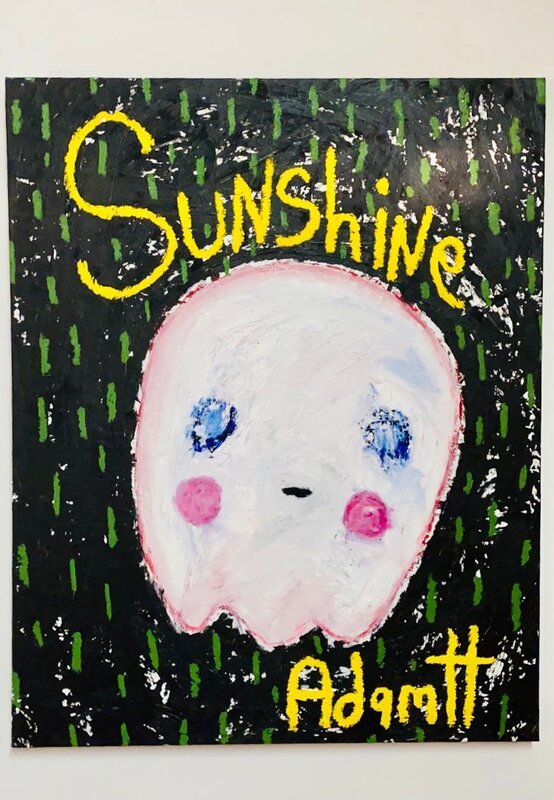 Sunshine
AdamH